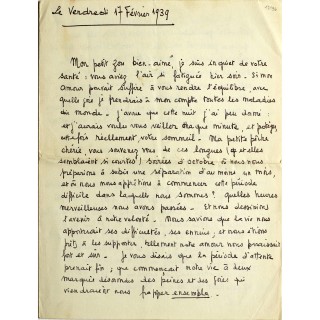 Le Vendredi 17 Février 1939
Mon petit zou bien-aimé, je suis inquiet de votre
santé : vous aviez l'air si fatigué hier soir. Si mon
amour pouvait suffire à vous rendre l'équilibre, avec
quelle joie je prendrais à mon compte toutes les maladies
du monde. J'avoue que cette nuit j'ai peu dormi
et j'aurais voulu vous veiller chaque minute, et protéger
réellement votre sommeil. Ma petite fille
chérie, vous souvenez vous de ces longues (et elles
semblaient si courtes!) soirées d'octobre où nous nous
préparions à subir une séparation d'au moins un mois,
et où nous nous apprêtions à commencer cette période
difficile dans laquelle nous sommes? Quelles heures
merveilleuses nous avons passées. Et nous dessinions
l'avenir à notre volonté. Nous savions que la vie nous
apporterait ses difficultés, ses ennuis, et nous étions
prêts à les supporter, tellement notre amour nous paraissait
fort et sûr. Je vous disais que la période d'attente
prenait fin; que commençait notre vie à deux
marquée désormais des peines et des joies qui
viendraient nous frapper ensemble.